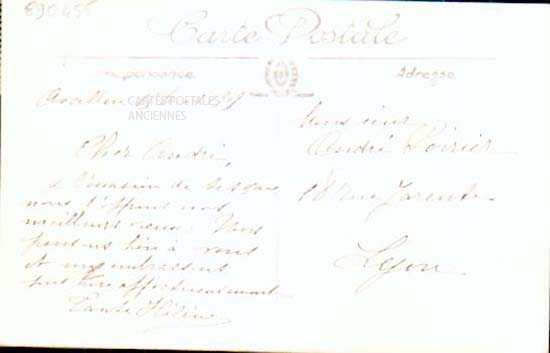 890455
Carte Postale
Correspondance
Adresse
CARTES POSTALES
ANCIENNES
Cher André,
à l'occasion de
nous t'offrons nos
meilleurs vœux. Nous
pensons bien à vous
et vous embrassons
bien affectueusement
Tante Hélène
Monsieur
André Poirier
18 rue
Lyon